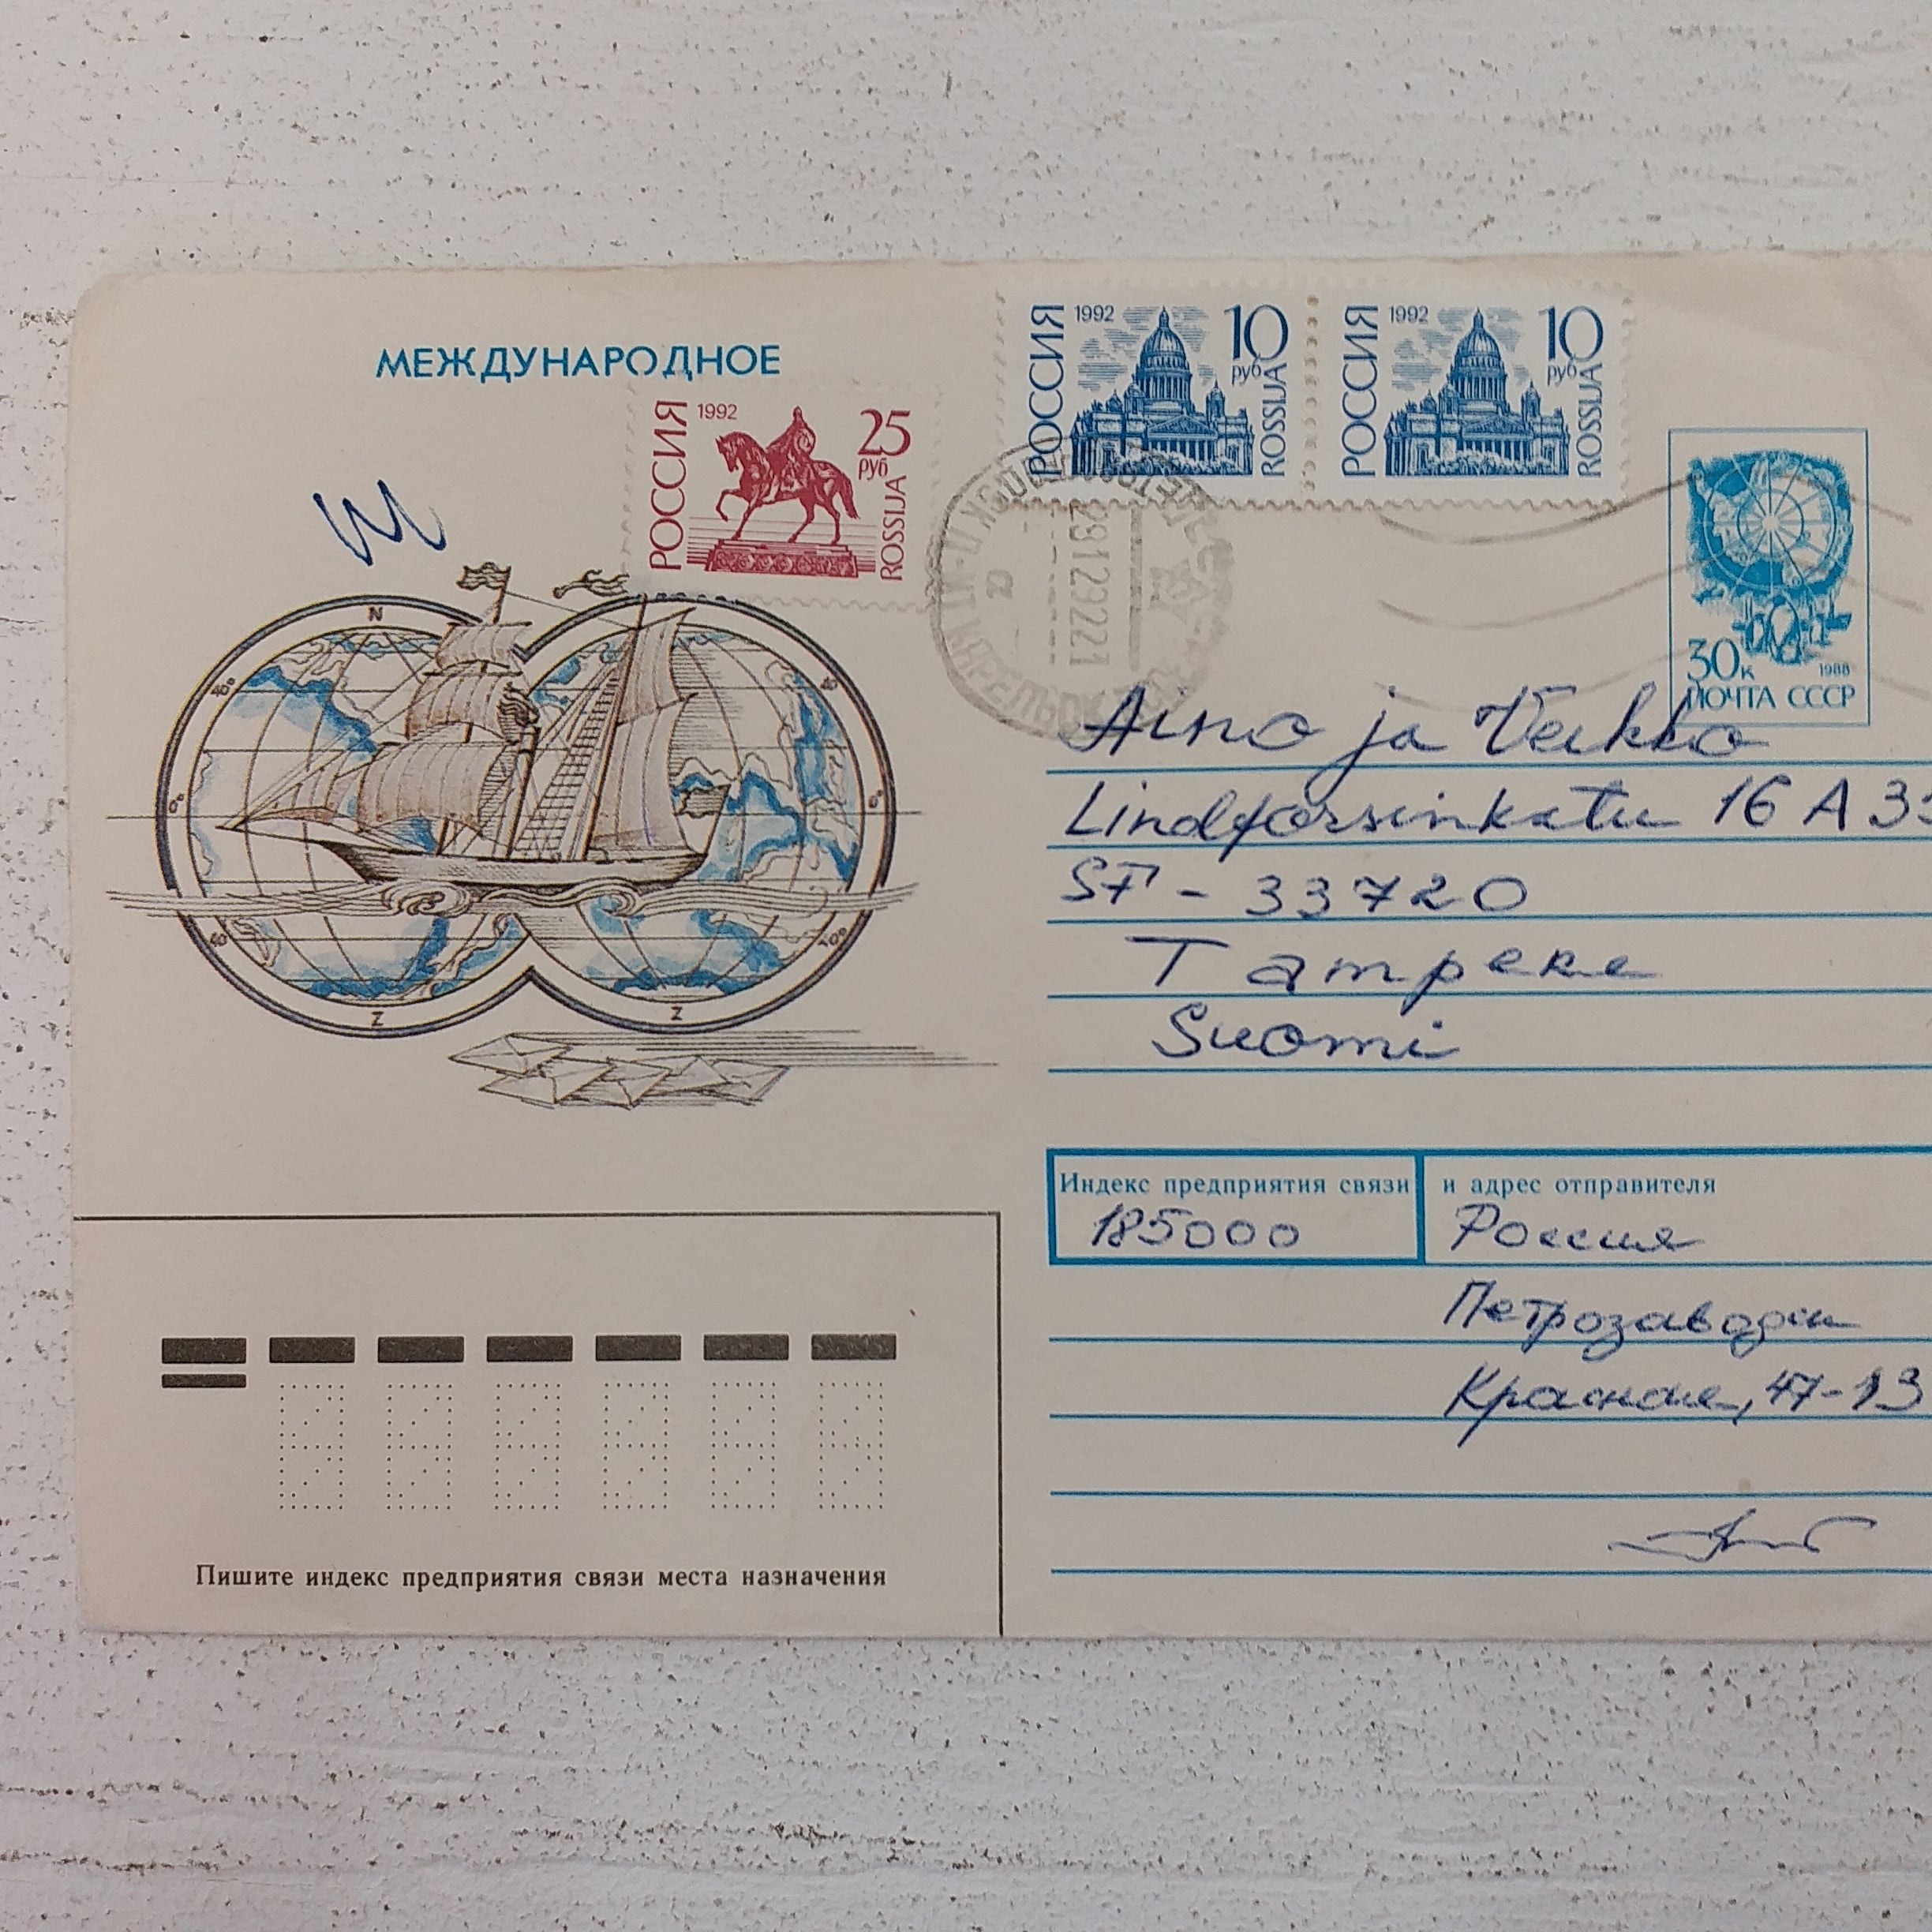 МЕЖДУНАРОДНОЕ
РОССИЯ 1992 25 руб ROSSIJA
РОССИЯ 1992 10 руб ROSSIJA
РОССИЯ 1992 10 руб ROSSIJA
30к 1988
ПОЧТА СССР
29129221
N
40°
40
0°
0°
40
40°
Z
Z
Aino ja Veikko
Lindforsinkatu 16 A
SF - 33720
Tampere
Suomi
Индекс предприятия связи и адрес отправителя
185000 Россия
Петрозаводск
Красная, 47-13
Пишите индекс предприятия связи места назначения